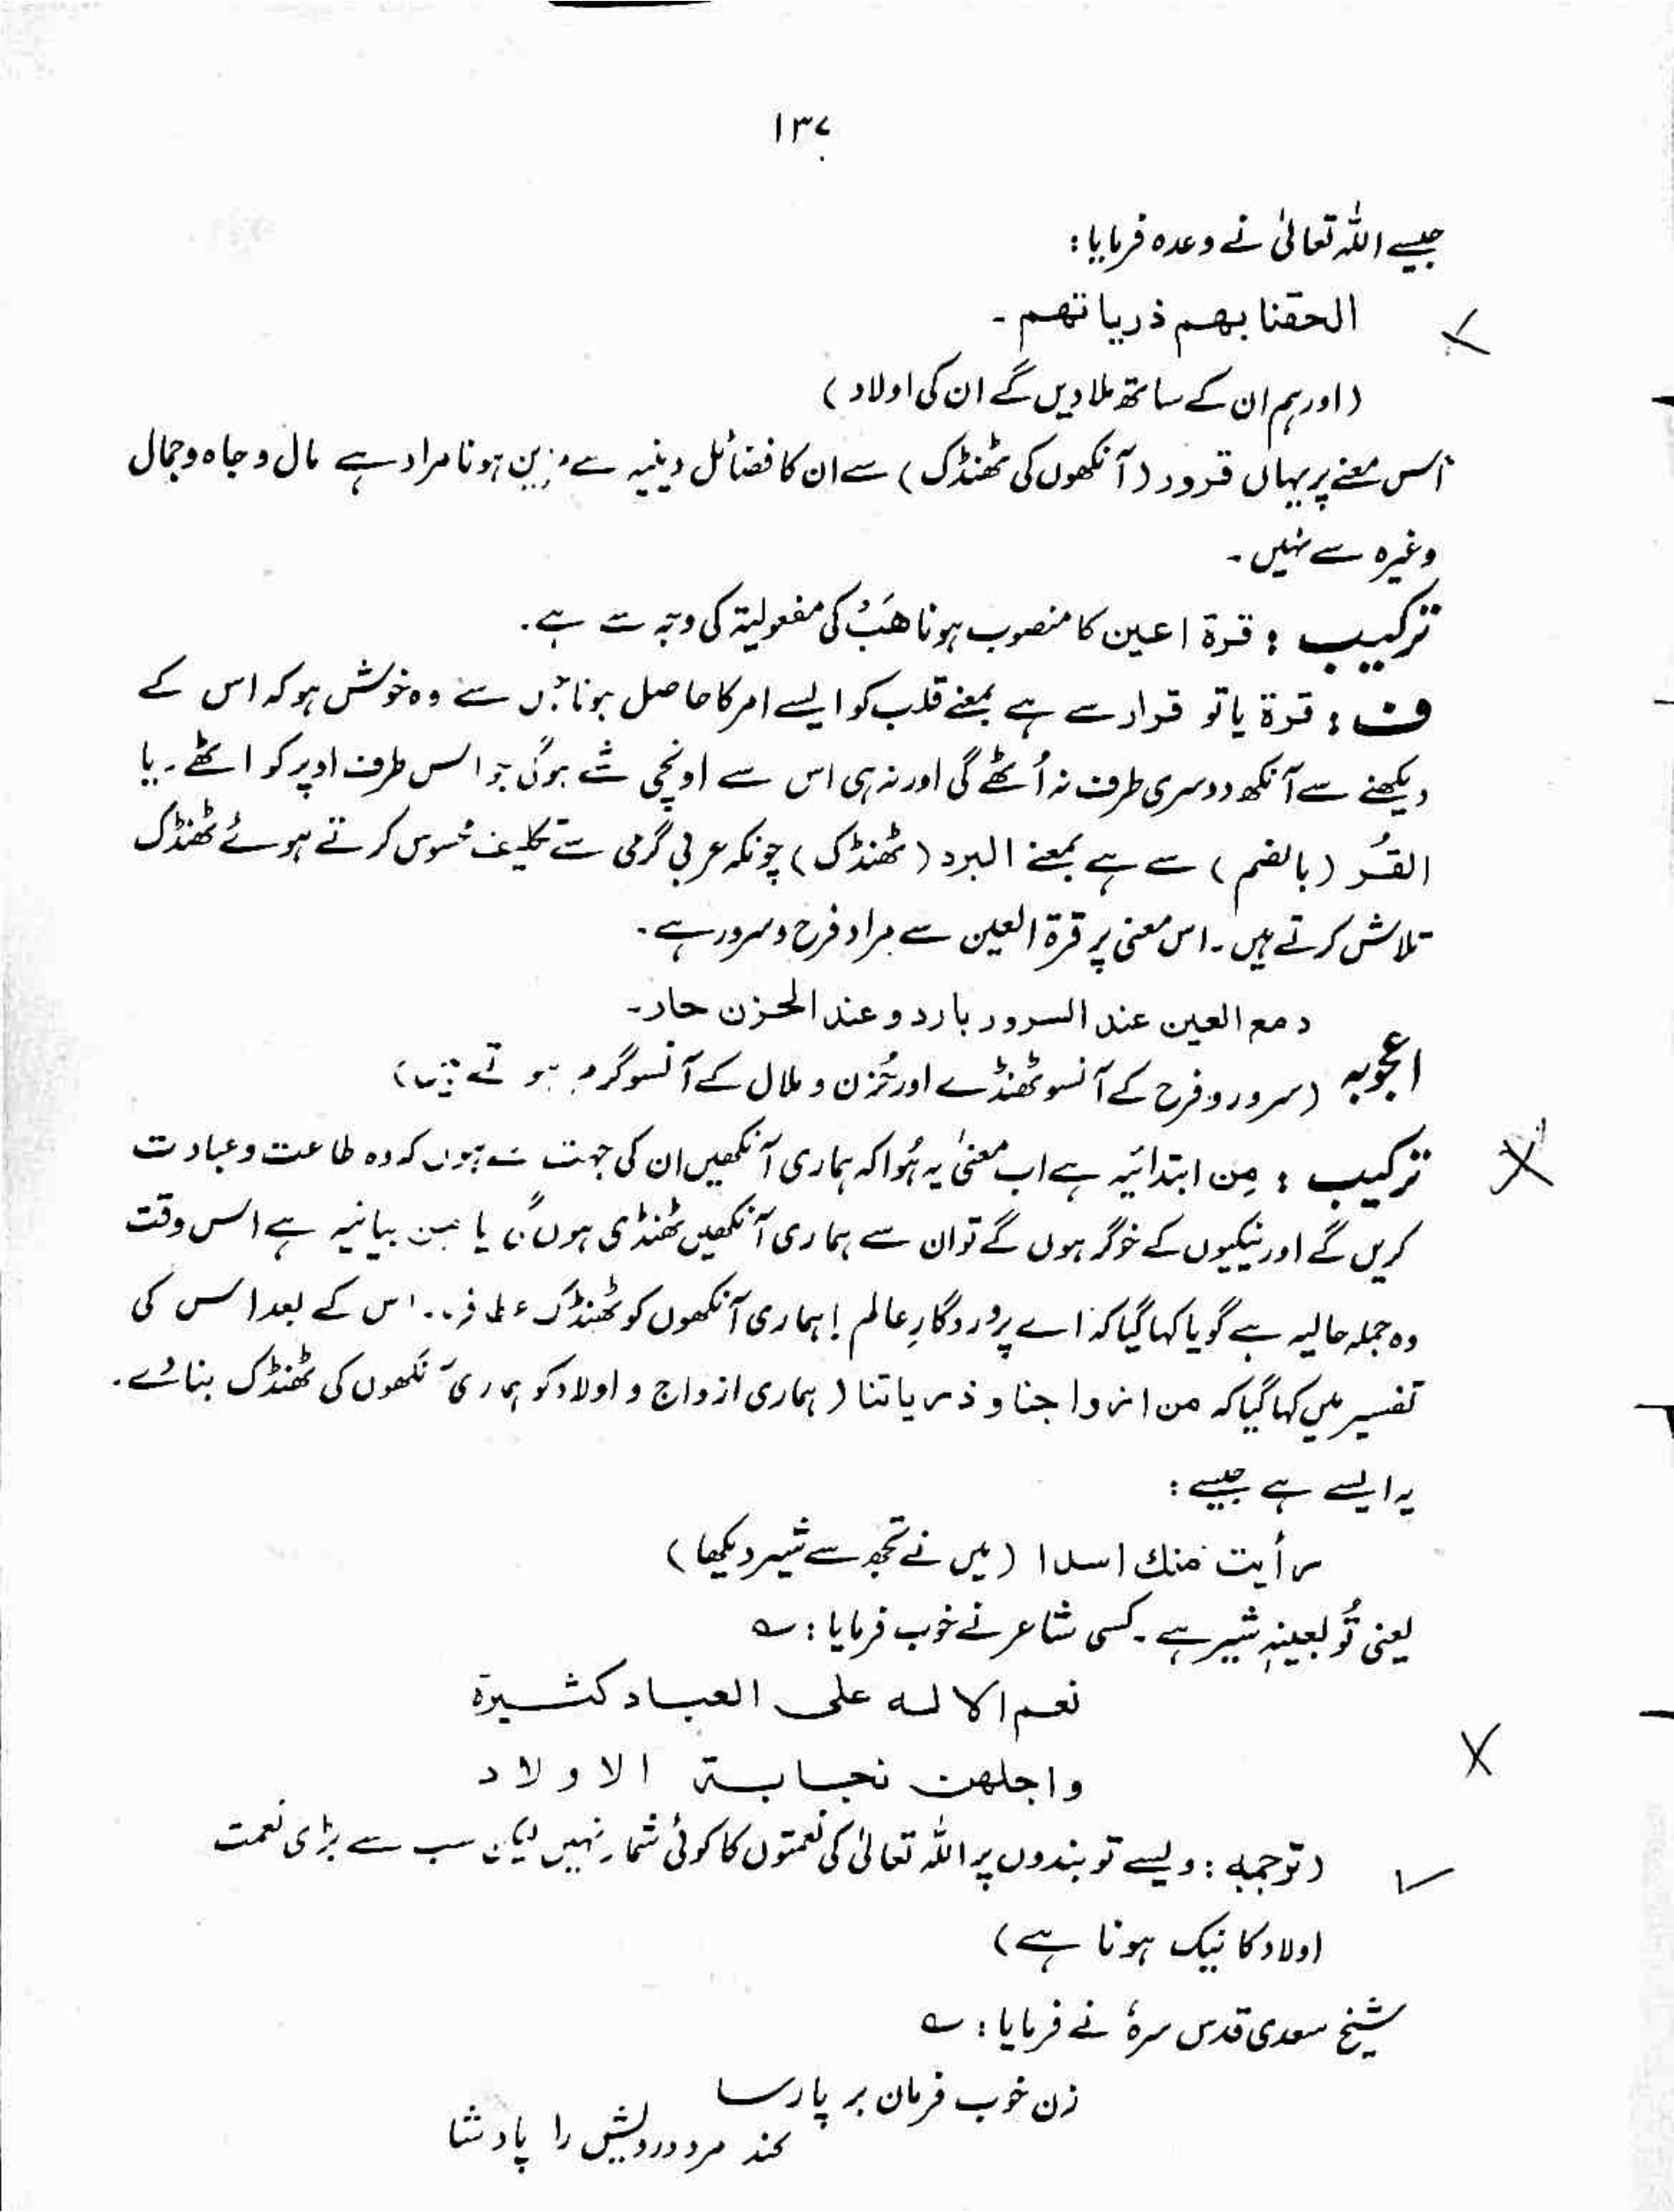 ۱۳۷
جیسے اللہ تعالیٰ نے وعدہ فرمایا:
الحقنا بهم ذریاتهم۔
(اور ہم ان کے ساتھ ملا دیں گے ان کی اولاد)
اس معنے پر یہاں قرور (آنکھوں کی ٹھنڈک) سے ان کا فضائل دینیہ سے مزین ہونا مراد ہے مال و جاہ و جمال
وغیرہ سے نہیں۔
ترکیب: قرة اعین کا منصوب ہونا هَبْ کی مفعولیۃ کی وجہ سے ہے۔
ف: قرة یا تو قرار سے ہے بمعنے قلب کو ایسے امر کا حاصل ہونا جس سے وہ خوش ہو کہ اس کے
دیکھنے سے آنکھ دوسری طرف نہ اُٹھے گی اور نہ ہی اس سے اونچی شے ہوگی جو اس طرف اوپر کو اٹھے۔ یا
القُر (بالضم) سے ہے بمعنے البرد (ٹھنڈک) چونکہ عربی گرمی سے تکلیف محسوس کرتے ہوئے ٹھنڈک
تلاش کرتے ہیں۔ اس معنی پر قرة العین سے مراد فرح و سرور ہے۔
دمع العین عند السرور بارد و عند الحزن حار۔
اعجوبہ (سرور و فرح کے آنسو ٹھنڈے اور حُزن و ملال کے آنسو گرم ہوتے ہیں)
ترکیب: مِن ابتدائیہ ہے اب معنیٰ یہ ہُوا کہ ہماری آنکھیں ان کی جہت سے ہوں کہ وہ طاعت و عبادت
کریں گے اور نیکیوں کے خوگر ہوں گے تو ان سے ہماری آنکھیں ٹھنڈی ہوں گی یا من بیانیہ ہے اس وقت
وہ جملہ حالیہ ہے گویا کہا گیا کہ اے پروردگارِ عالم! ہماری آنکھوں کو ٹھنڈک عطا فرما۔ اس کے بعد اس کی
تفسیر میں کہا گیا کہ من ازواجنا و ذریاتنا (ہماری ازواج و اولاد کو ہماری آنکھوں کی ٹھنڈک بنا دے۔
یہ ایسے ہے جیسے:
رأیت منك اسدا (میں نے تجھ سے شیر دیکھا)
یعنی تُو بعینہٖ شیر ہے۔ کسی شاعر نے خوب فرمایا: ؎
نعم الاله علی العباد کثیرة
واجلهن نجابة الاولاد
(ترجمہ: ویسے تو بندوں پر اللہ تعالیٰ کی نعمتوں کا کوئی شمار نہیں لیکن سب سے بڑی نعمت
اولاد کا نیک ہونا ہے)
شیخ سعدی قدس سرہٗ نے فرمایا: ؎
زن خوب فرمان بر پارسا
کند مرد درویش را پادشا